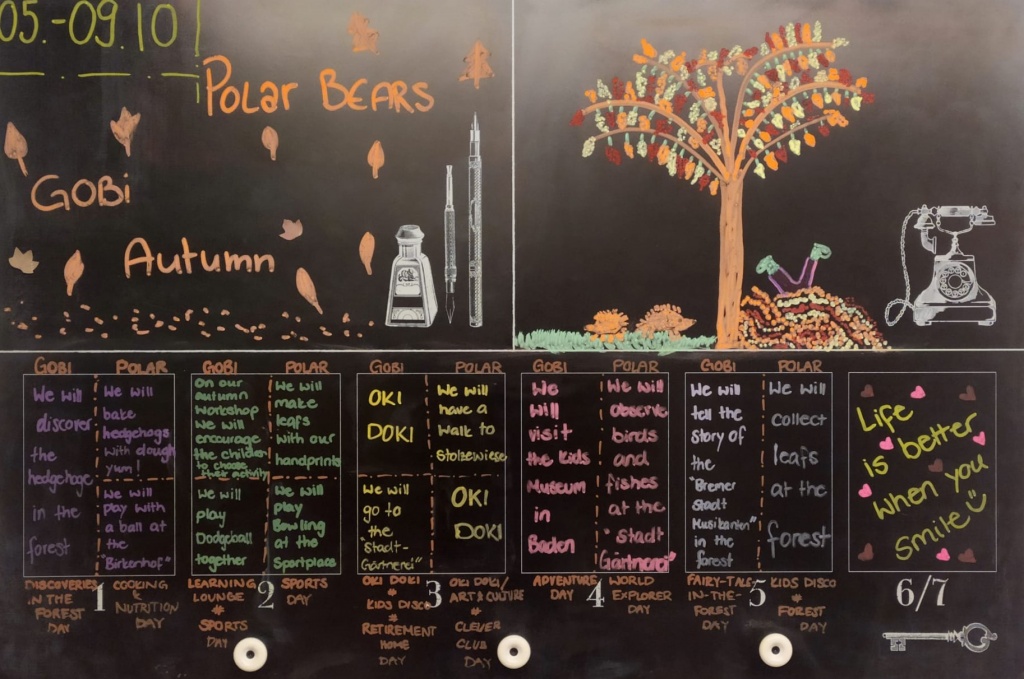 05.-09.10
Polar BEARS
GOBi
Autumn
GOBI
POLAR
GOBI
POLAR
GOBI
POLAR
GOBI
POLAR
GOBI
POLAR
We will
discover
the
hedgehogs
in the
forest
We will
bake
hedgehogs
with dough
yum!
We will
play with
a ball at
the
"Birkenhof"
On our
autumn
workshop
we will
encourage
the children
to choose
their activity
We will
play
Dodgeball
together
We will
make
leafs
with our
handprints
We will
play
Bowling
at the
Sportplace
OKI
DOKI
We will
go to
the
"Stadt-
Gärtnerei"
We will
have a
walk to
Stolzewiese
OKI
DOKI
We
will
visit
the Kids
Museum
in
Baden
We will
observe
birds
and
fishes
at the
"Stadt
Gärtnerei"
We will
tell the
story of
the
"Bremer
Stadt
Musikanten"
in the
forest
We will
collect
leafs
at the
forest
Life
is better
when you
smile
DISCOVERIES
IN THE
FOREST
DAY
1
COOKING
&
NUTRITION
DAY
LEARNING
LOUNGE
#
SPORTS
DAY
2
SPORTS
DAY
OKI DOKI
#
KIDS DISCO
#
RETIREMENT
HOME
DAY
3
OKI DOKI/
ART & CULTURE
#
CLEVER
CLUB
DAY
ADVENTURE
DAY
4
WORLD
EXPLORER
DAY
FAIRY-TALE-
IN-THE-
FOREST
DAY
5
KIDS DISCO
#
FOREST
DAY
6/7